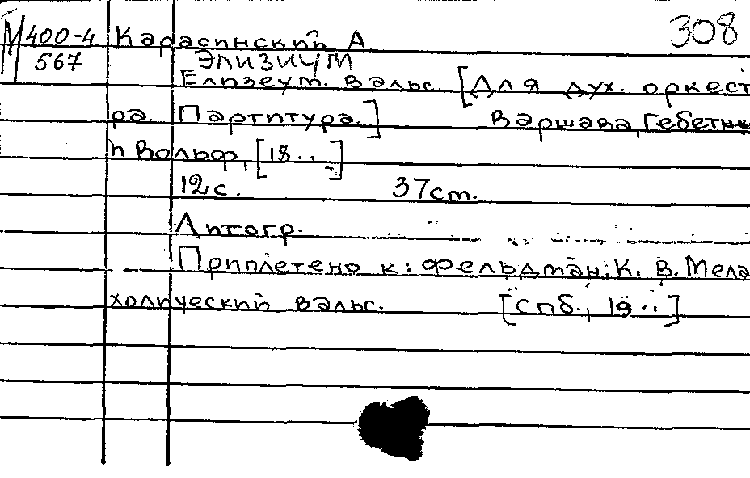 308
М 400-4
567
Карасинский А
ЭЛИЗИУМ
Елизеум. Вальс. [Для дух. оркест
ра. Партитура.] Варшава, Гебетн
и Вольф, [18..]
12с. 37см.
Литогр.
Приплетено к: Фельдман, К. В. Мела
холический вальс. [Спб., 19..]